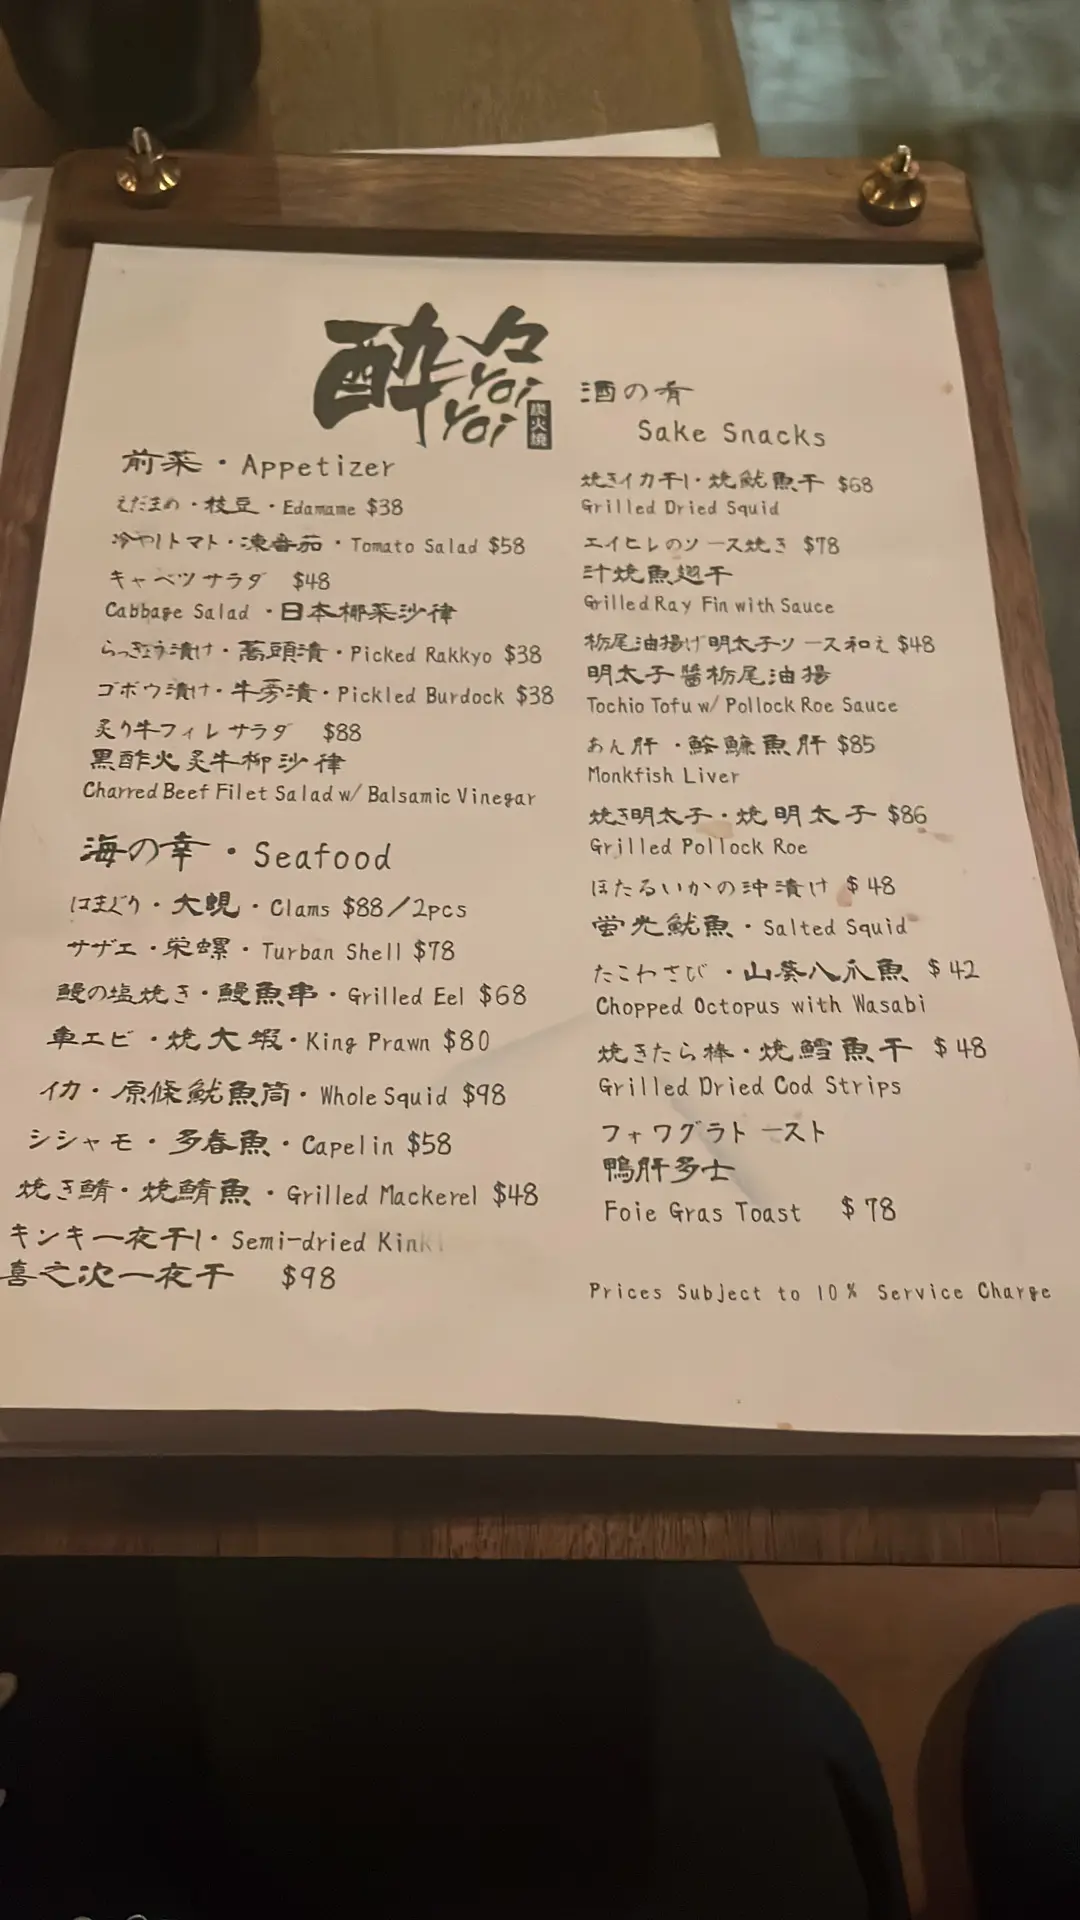 酔々
yoi
yoi
炭火燒
前菜・Appetizer
えだまめ・枝豆・Edamame $38
冷やしトマト・凍番茄・Tomato Salad $58
キャベツサラダ $48
Cabbage Salad・日本椰菜沙律
らっきょう漬け・蕎頭漬・Picked Rakkyo $38
ゴボウ漬け・牛蒡漬・Pickled Burdock $38
炙り牛フィレサラダ $88
黒酢火炙牛柳沙律
Charred Beef Filet Salad w/ Balsamic Vinegar
海の幸・Seafood
はまぐり・大蜆・Clams $88/2pcs
サザエ・栄螺・Turban Shell $78
鰻の塩焼き・鰻魚串・Grilled Eel $68
車エビ・焼大蝦・King Prawn $80
イカ・原條魷魚筒・Whole Squid $98
シシャモ・多春魚・Capelin $58
焼き鯖・焼鯖魚・Grilled Mackerel $48
キンキ一夜干し・Semi-dried Kinki
喜之次一夜干 $98
酒の肴
Sake Snacks
焼きイカ干し・焼魷魚干 $68
Grilled Dried Squid
エイヒレのソース焼き $78
汁焼魚翅干
Grilled Ray Fin with Sauce
栃尾油揚げ明太子ソース和え $48
明太子醬栃尾油揚
Tochio Tofu w/ Pollock Roe Sauce
あん肝・鮟鱇魚肝 $85
Monkfish Liver
焼き明太子・焼明太子 $86
Grilled Pollock Roe
ほたるいかの沖漬け $48
蛍光魷魚・Salted Squid
たこわさび・山葵八爪魚 $42
Chopped Octopus with Wasabi
焼きたら棒・焼鱈魚干 $48
Grilled Dried Cod Strips
フォワグラトースト
鴨肝多士
Foie Gras Toast $78
Prices Subject to 10% Service Charge